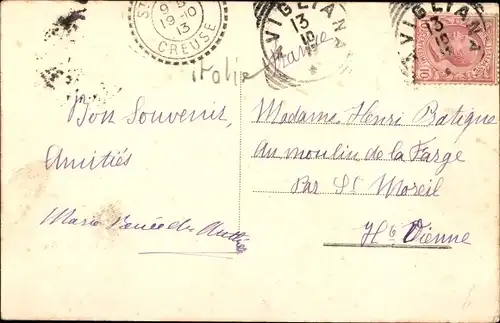 9
19-10
13
CREUSE
AVIGLIANA
13
10
AVIGLIANA
13
10
italie
France
Bon Souvenir,
Amitiés
Marie
Madame Henri Batigne
Au moulin de la Farge
Par St Moreil
Hte Vienne